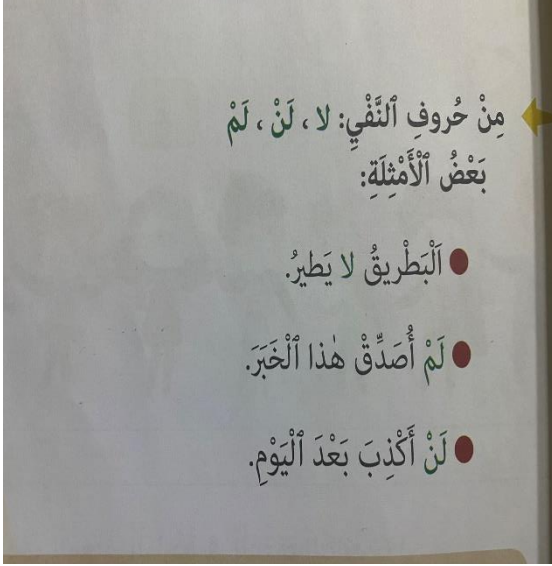 مِنْ حُروفِ ٱلنَّفْيِ: لا ، لَنْ ، لَمْ
بَعْضُ ٱلْأَمْثِلَةِ:
اَلْبَطْريقُ لا يَطيرُ.
لَمْ أُصَدِّقْ هٰذا ٱلْخَبَرَ.
لَنْ أَكْذِبَ بَعْدَ ٱلْيَوْمِ.